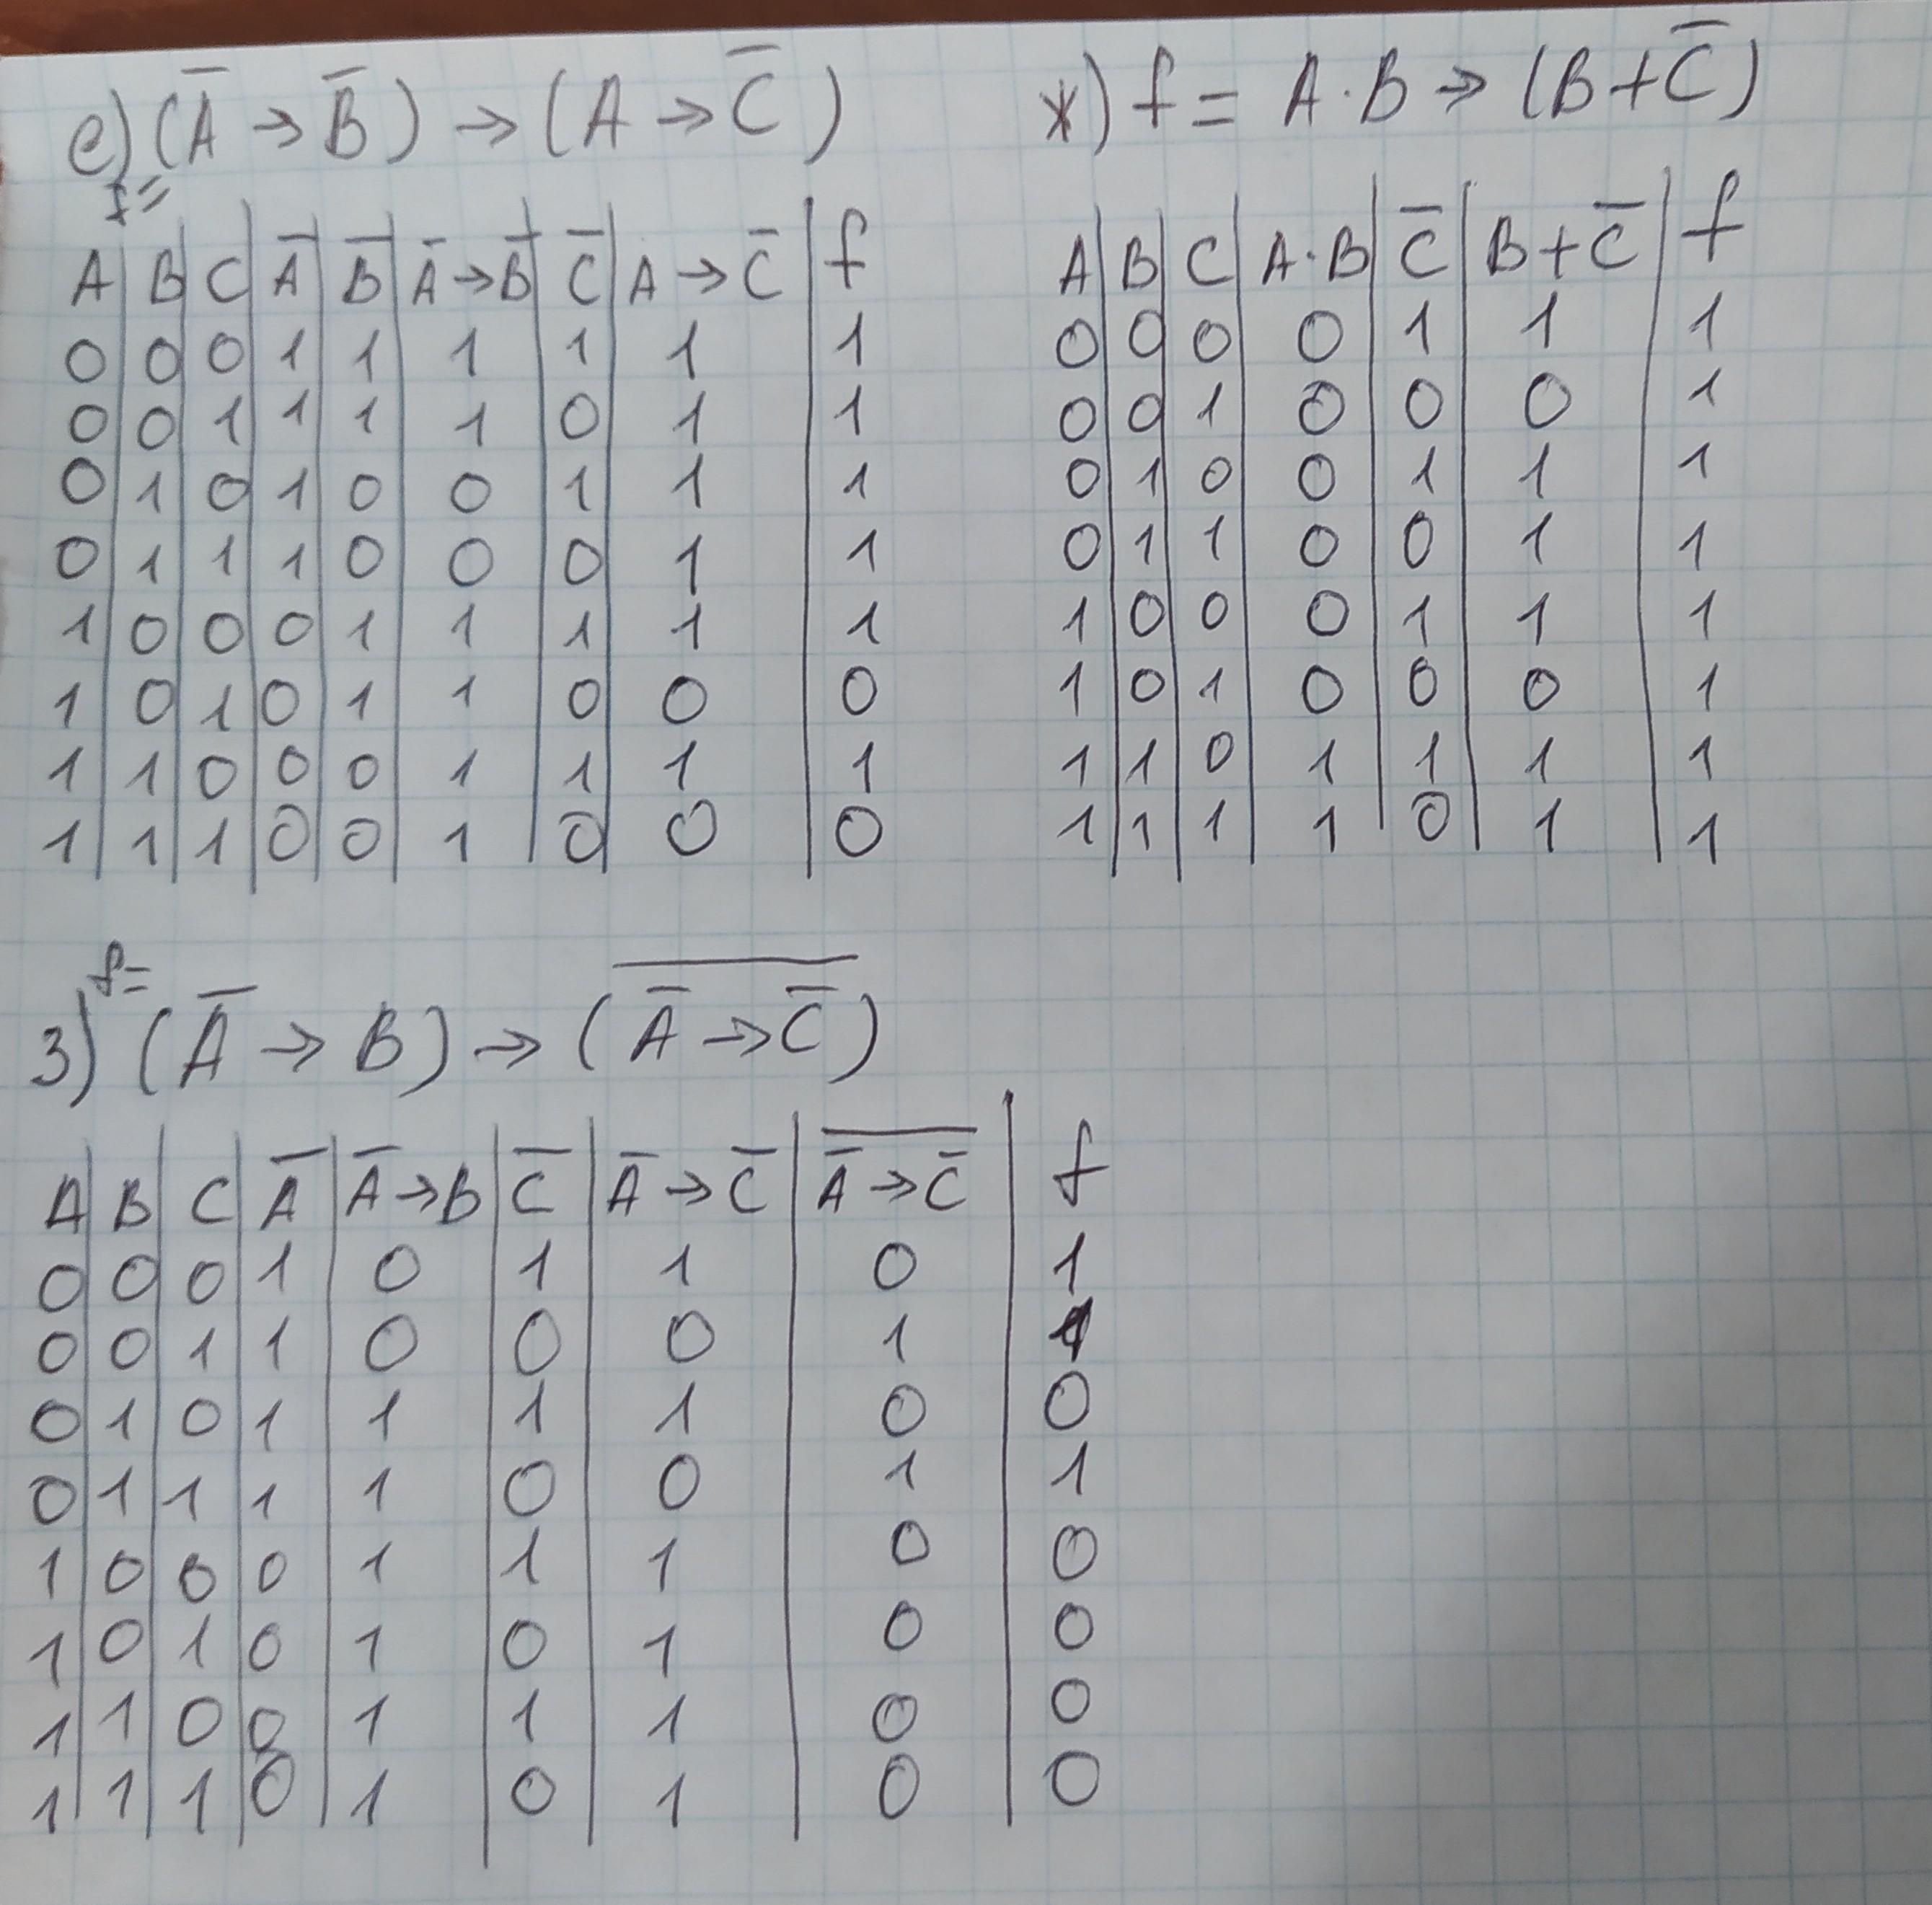 е) (A̅ → B̅) → (A → C̅)
f=
A | B | C | A̅ | B̅ | A̅→B̅ | C̅ | A → C̅ | f
0 0 0 1 1 1 1 1 1
0 0 1 1 1 1 0 1 1
0 1 0 1 0 0 1 1 1
0 1 1 1 0 0 0 1 1
1 0 0 0 1 1 1 1 1
1 0 1 0 1 1 0 0 0
1 1 0 0 0 1 1 1 1
1 1 1 0 0 1 0 0 0
ж) f = A·B → (B+C̅)
A | B | C | A·B | C̅ | B+C̅ | f
0 0 0 0 1 1 1
0 0 1 0 0 0 1
0 1 0 0 1 1 1
0 1 1 0 0 1 1
1 0 0 0 1 1 1
1 0 1 0 0 0 1
1 1 0 1 1 1 1
1 1 1 1 0 1 1
f=
з) (A̅ → B) → (‾(A̅ → C̅)‾)
A | B | C | A̅ | A̅→B | C̅ | A̅ → C̅ | ‾(A̅ → C̅)‾ | f
0 0 0 1 0 1 1 0 1
0 0 1 1 0 0 0 1 1
0 1 0 1 1 1 1 0 0
0 1 1 1 1 0 0 1 1
1 0 0 0 1 1 1 0 0
1 0 1 0 1 0 1 0 0
1 1 0 0 1 1 1 0 0
1 1 1 0 1 0 1 0 0